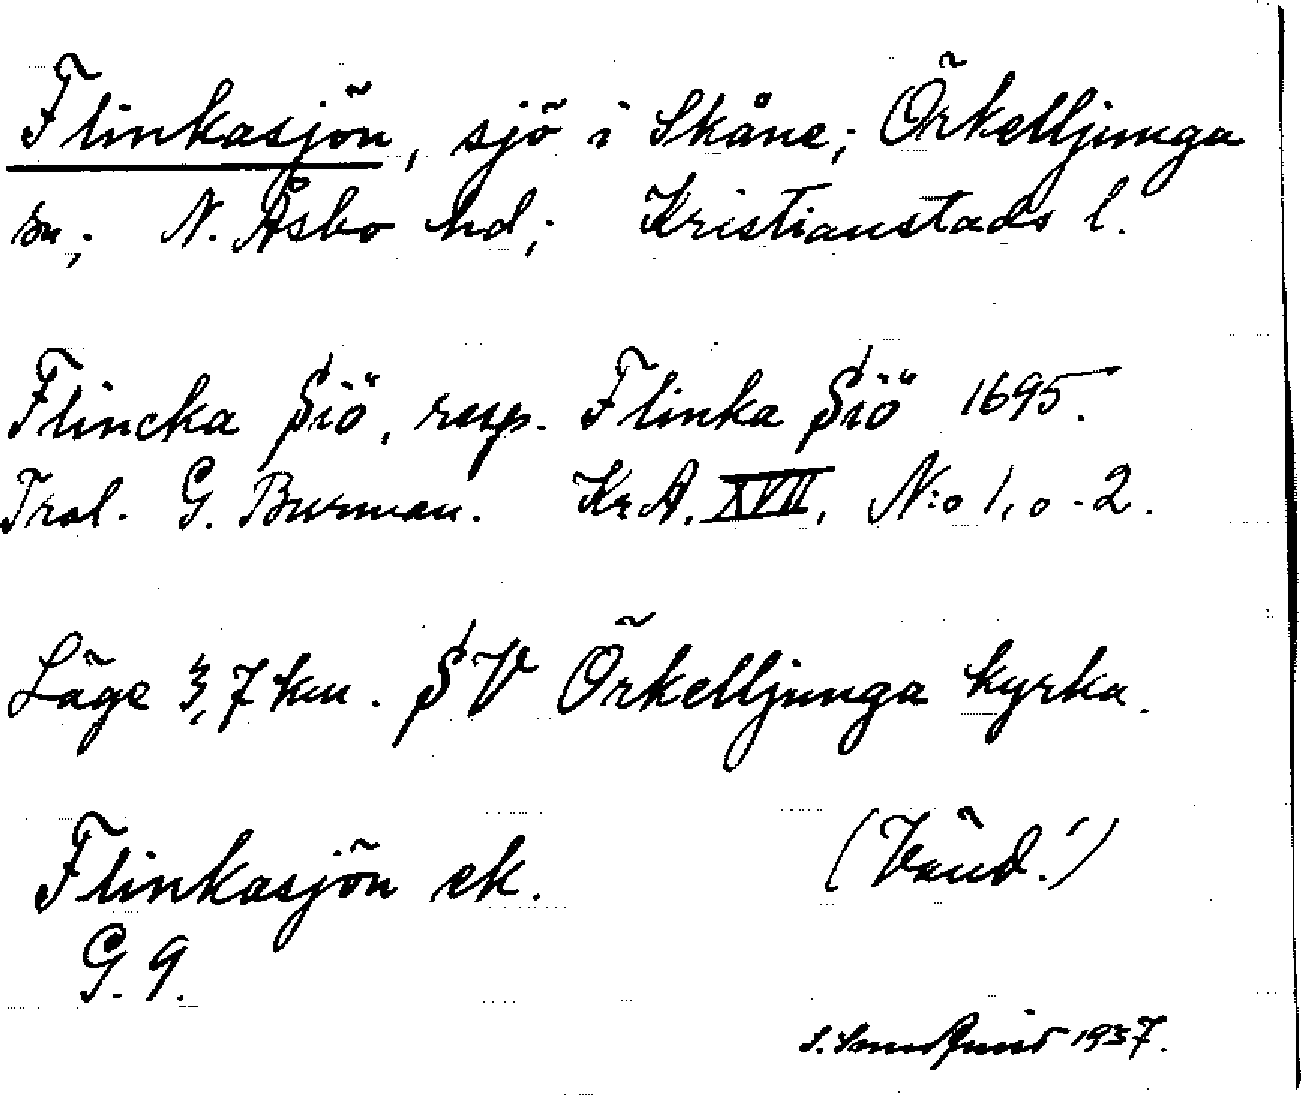 Flinkasjön, sjö i Skåne; Örkelljunga
sn; N. Åsbo hd; Kristianstads l.
Flincka Siö, resp. Flinka Siö 1695.
Trol. G. Burman. Kr.A. XVII, N:o 1, o - 2.
Läge 3,7 km. SV Örkelljunga kyrka.
Flinkasjön ek. (Vänd!)
G. 9.
S. 1937.